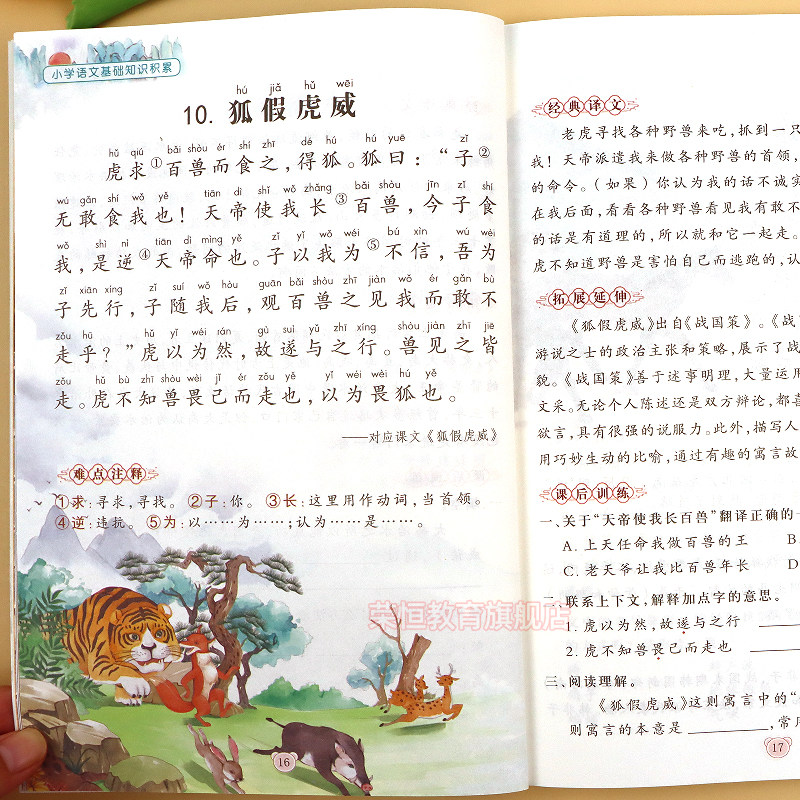 小学语文基础知识积累
hú jiǎ hǔ wēi
10. 狐假虎威
hǔ qiú bǎi shòu ér shí zhī dé hú hú yuē zǐ
虎求①百兽而食之，得狐。狐曰：“子②
wú gǎn shí wǒ yě tiān dì shǐ wǒ zhǎng bǎi shòu jīn zǐ shí
无敢食我也！天帝使我长③百兽，今子食
wǒ shì nì tiān dì mìng yě zǐ yǐ wǒ wéi bú xìn wú wèi
我，是逆④天帝命也。子以我为⑤不信，吾为
zǐ xiān xíng zǐ suí wǒ hòu guān bǎi shòu zhī jiàn wǒ ér gǎn bù
子先行，子随我后，观百兽之见我而敢不
zǒu hū hǔ yǐ wéi rán gù suì yǔ zhī xíng shòu jiàn zhī jiē
走乎？”虎以为然，故遂与之行。兽见之皆
zǒu hǔ bù zhī shòu wèi jǐ ér zǒu yě yǐ wéi wèi hú yě
走。虎不知兽畏己而走也，以为畏狐也。
——对应课文《狐假虎威》
难点注释
①求：寻求，寻找。 ②子：你。 ③长：这里用作动词，当首领。
④逆：违抗。 ⑤为：以……为……；认为……是……。
荣恒教育旗舰店
16
经典译文
老虎寻找各种野兽来吃，抓到一只
我！天帝派遣我来做各种野兽的首领，
的命令。（如果）你认为我的话不诚实
在我后面，看看各种野兽看见我有敢不
的话是有道理的，所以就和它一起走。
虎不知道野兽是害怕自己而逃跑的，认
拓展延伸
《狐假虎威》出自《战国策》。《战
游说之士的政治主张和策略，展示了战
貌。《战国策》善于述事明理，大量运用
文采。无论个人陈述还是双方辩论，都喜
欲言，具有很强的说服力。此外，描写人
用巧妙生动的比喻，通过有趣的寓言故
课后训练
一、关于“天帝使我长百兽”翻译正确的一
A. 上天任命我做百兽的王 B
C. 老天爷让我比百兽年长 D
二、联系上下文，解释加点字的意思。
1. 虎以为然，故遂与之行
2. 虎不知兽畏己而走也
三、阅读理解。
《狐假虎威》这则寓言中的“
则寓言的本意是________，常用
17